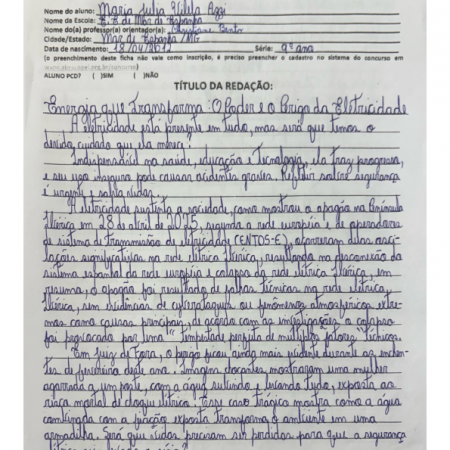 Nome do aluno: Maria Julia Vilela Azzi
Nome da Escola: E. E. de Mar de Espanha
Nome do(a) professor(a) orientador(a): Bento
Cidade/Estado: Mar de Espanha /MG
Data de nascimento: 18/04/2012 Série: 9º ano
(o preenchimento deste ficha não vale como inscrição, é preciso preencher o cadastro no sistema do concurso em
ALUNO PCD? ( )SIM ( )NÃO
TÍTULO DA REDAÇÃO:
Energia que Transforma: O Poder e o Perigo da Eletricidade
A eletricidade está presente em tudo, mas será que temos o
devido cuidado que ela merece?
Indispensável na saúde, educação e tecnologia, ela traz progresso,
e seu uso inseguro pode causar acidentes graves. Refletir sobre segurança
é urgente e salva vidas.
A eletricidade sustenta a sociedade como mostrou o apagão na Península
Ibérica em 28 de abril de 2025, segundo a rede européia de operadores
de sistema de transmissão de eletricidade (ENTOS-E), ocorreram duas osci-
lações significativas na rede elétrica Ibérica, resultando na desconexão do
sistema espanhol da rede européia e colapso da rede elétrica Ibérica, em
resumo, o apagão foi resultado de falhas técnicas na rede elétrica
Ibérica, sem evidências de cyberataques ou fenômenos atmosféricos extre-
mos como causas principais, de acordo com as investigações o colapso
foi provocado por uma "tempestade perfeita de múltiplos fatores" técnicos.
Em Juiz de Fora, o perigo ficou ainda mais evidente durante as enchen-
tes de fevereiro deste ano. Imagens chocantes mostraram uma mulher
agarrada a um poste, com a água subindo e levando tudo, exposta ao
risco mortal de choque elétrico. Esse caso trágico mostra como a água
combinada com a fiação exposta transforma o ambiente em uma
armadilha. Será que vidas precisam ser perdidas para que a segurança